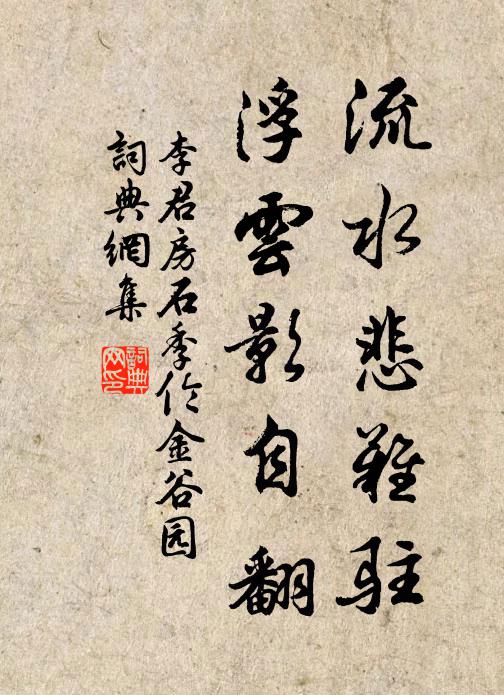 流水悲難駐
浮雲影自翻
李君房石季伦金谷园
詞典網集
詞典网印